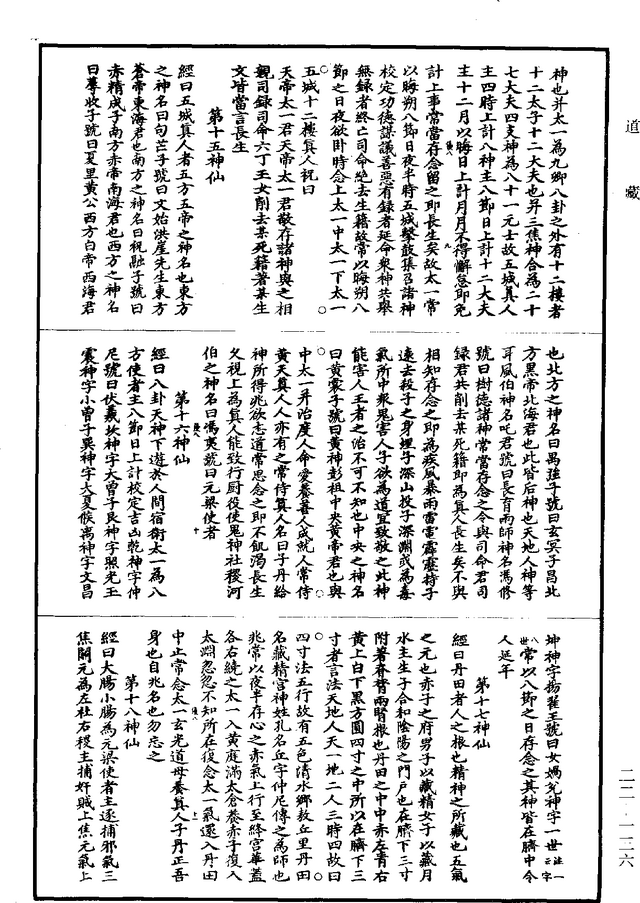 道藏
神也并太一為九卿八卦之外有十二樓者
十二太子十二大夫也并三焦神合為二十
七大夫四支神為八十一元士故五城真人
主四時上計八神主八節日上計十二大夫
主十二月以晦日上計月月不得懈怠即免
計上事常當存念留之即長生矣故太一常
以晦朔八節日夜半時五城擊鼓集召諸神
校定功德謀議善惡有錄者延命衆神共舉
無錄者終亡司命絶去生籍故常以晦朔八
節之日夜欲卧時念上太一中太一下太一
五城十二樓真人祝曰
天帝太一君天帝太一君敬存諸神與之相
親司録司命六丁玉女削去某死籍著某生
文皆當言長生
第十五神仙
經曰五城真人者五方五帝之神名也東方
之神名曰句芒子號曰文始洪崖先生東方
蒼帝東海君也南方之神名曰祝融子號曰
赤精成子南方赤帝南海君也西方之神名
曰蓐收子號曰夏里黄公西方白帝西海君
也北方之神名曰禺强子號曰玄冥子昌北
方黑帝北海君也此皆后神也天地人神等
耳風伯神名吒君號曰長育雨師神名馮修
號曰樹德諸神常當存念之令與司命君司
録君共削去某死籍即為真人長生矣不與
相知存念之即為疾風暴雨雷電霹靂持子
遠去殺子之身埋子深山投子深淵或為毒
氣所中衆鬼害人子欲為道宜致敬之此神
能害人王者之治不可不知也中央之神名
曰黄裳子號曰黄神彭祖中央黄帝君也與
中太一并治度人命愛養善人成就人常侍
黄天真人人亦有之常侍真人名曰子丹給
神所得兆欲志道常思念之即不飢渴長生
久視上為真人能致行厨役使鬼神社稷河
伯之神名曰馮夷號曰元梁使者
第十六神仙
經曰八卦天神下遊於人間宿衛太一為八
方使者主八節日上計校定吉凶乾神字仲
尼號曰伏羲坎神字大曽子艮神字照光玉
震神字小曽子巽神字大夏候离神字文昌
坤神字揚翟王號曰女媧兌神字一世注一云字
八世常以八節之日存念之其神皆在臍中令
人延年
第十七神仙
經曰丹田者人之根也精神之所藏也五氣
之元也赤子之府男子以藏精女子以藏月
水主生子合和陰陽之門戶也在臍下三寸
附著脊膂兩腎根也丹田之中中赤左青右
黄上白下黑方圓四寸之中所以在臍下三
寸者言法天地人天一地二人三時四故曰
四寸法五行故有五色清水郷敖丘里丹田
名藏精宮神姓孔名丘字仲尼傳之為師也
兆常以夜半存心之赤氣上行至絳宮華蓋
各右繞之太一入黄庭滿太倉養赤子復入
太淵忽忽不知所在復念太一氣還入丹田
中止常念太一玄光道母養真人子丹正吾
身也自兆名也勿忘之
第十八神仙
經曰大腸小腸為元梁使者主逐捕邪氣三
焦關元為左社右稷主捕奸賊上焦元氣上
二二一三六